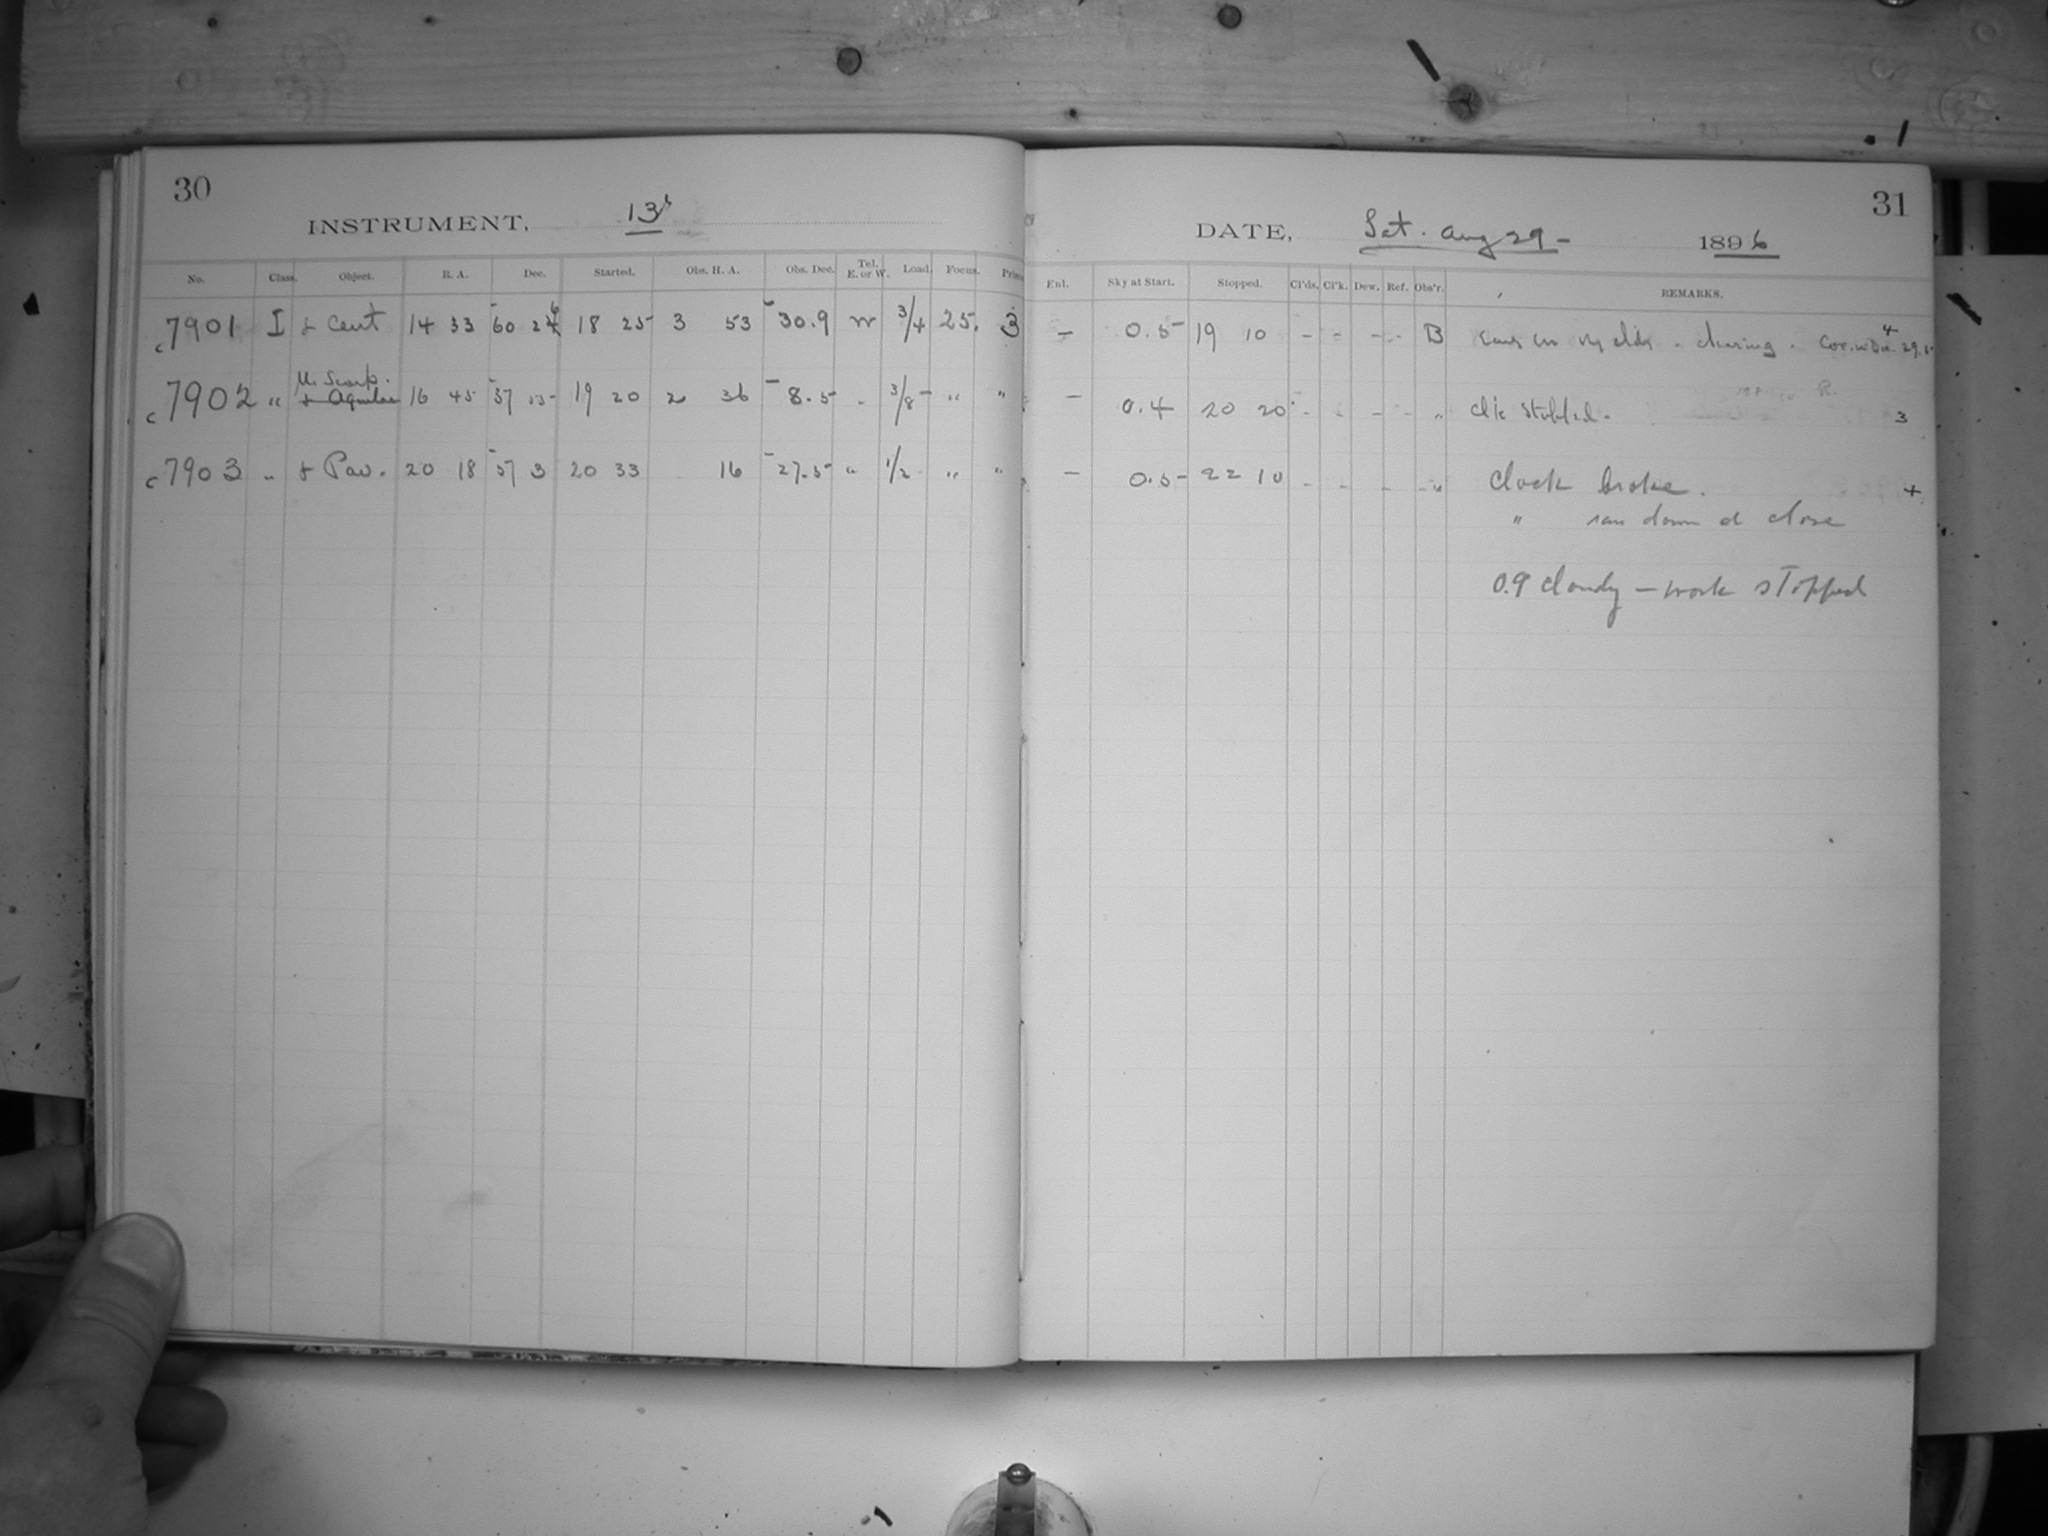 30
INSTRUMENT, 13"
No. Class. Object. R. A. Dec. Started. Obs. H. A. Obs. Dec. Tel. E. or W. Load. Focus. Prism
c 7901 I α Cent 14 33 –60 26 18 25 3 53 –30.9 W 3/4 25. 3
c 7902 " μ. Scorp. α Aquilae 16 45 –37 53 19 20 2 36 –8.5 " 3/8 " "
c 7903 " α Pav. 20 18 –57 3 20 33 16 –27.5 " 1/2 " "
31
DATE, Sat. Aug 29 – 1896
Enl. Sky at Start. Stopped. Cl'ds. Cl'k. Dew. Ref. Obs'r. REMARKS.
– 0.5 19 10 – – – – B clearing. 4
– 0.4 20 20 – – – – " clk stopped. 3
– 0.5 22 10 – – – – " clock broke. 4
" ran down at close
0.9 cloudy – work stopped